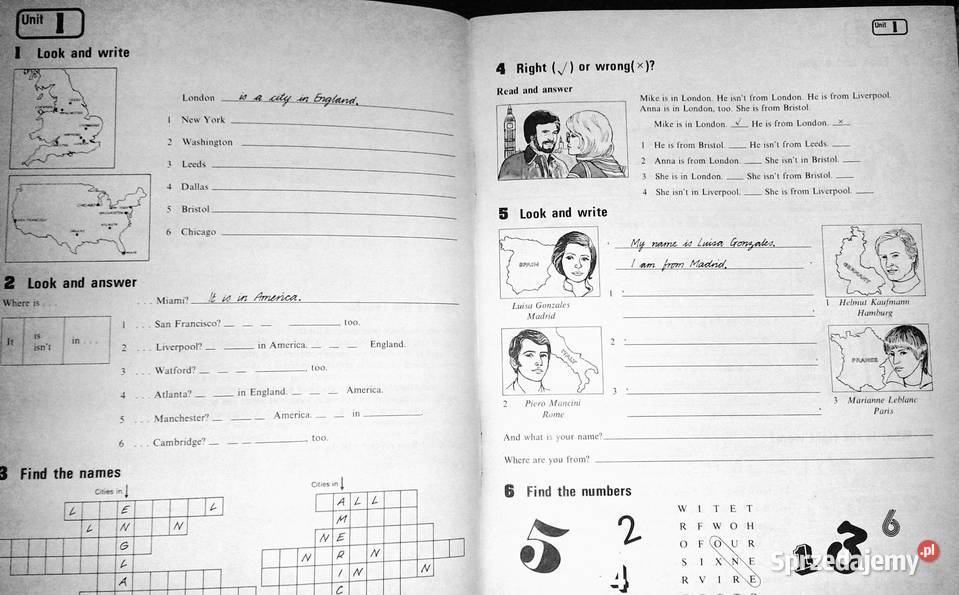 Unit 1
1 Look and write
London is a city in England.
1 New York
2 Washington
3 Leeds
4 Dallas
5 Bristol
6 Chicago
2 Look and answer
Where is . . .
It is isn't in . . .
. . . Miami? It is in America.
1 . . . San Francisco? too.
2 . . . Liverpool? in America. England.
3 . . . Watford? too.
4 . . . Atlanta? in England. America.
5 . . . Manchester? America. in
6 . . . Cambridge? too.
3 Find the names
Cities in
L E L
L N N
G
L
A
Cities in
A L L
M
N E
N R N
I N N
C
Unit 1
4 Right (√) or wrong(×)?
Read and answer
Mike is in London. He isn't from London. He is from Liverpool.
Anna is in London, too. She is from Bristol.
Mike is in London. √ He is from London. ×
1 He is from Bristol. He isn't from Leeds.
2 Anna is from London. She isn't in Bristol.
3 She is in London. She isn't from Bristol.
4 She isn't in Liverpool. She is from Liverpool.
5 Look and write
SPAIN
Luisa Gonzales
Madrid
My name is Luisa Gonzales.
I am from Madrid.
GERMANY
1 Helmut Kaufmann
Hamburg
1
ITALY
2 Piero Mancini
Rome
2
3
FRANCE
3 Marianne Leblanc
Paris
And what is your name?
Where are you from?
6 Find the numbers
5 2 4 1 3 6
W I T E T
R F W O H
O F O U R
S I X N E
R V I R E
Sprzedajemy.pl